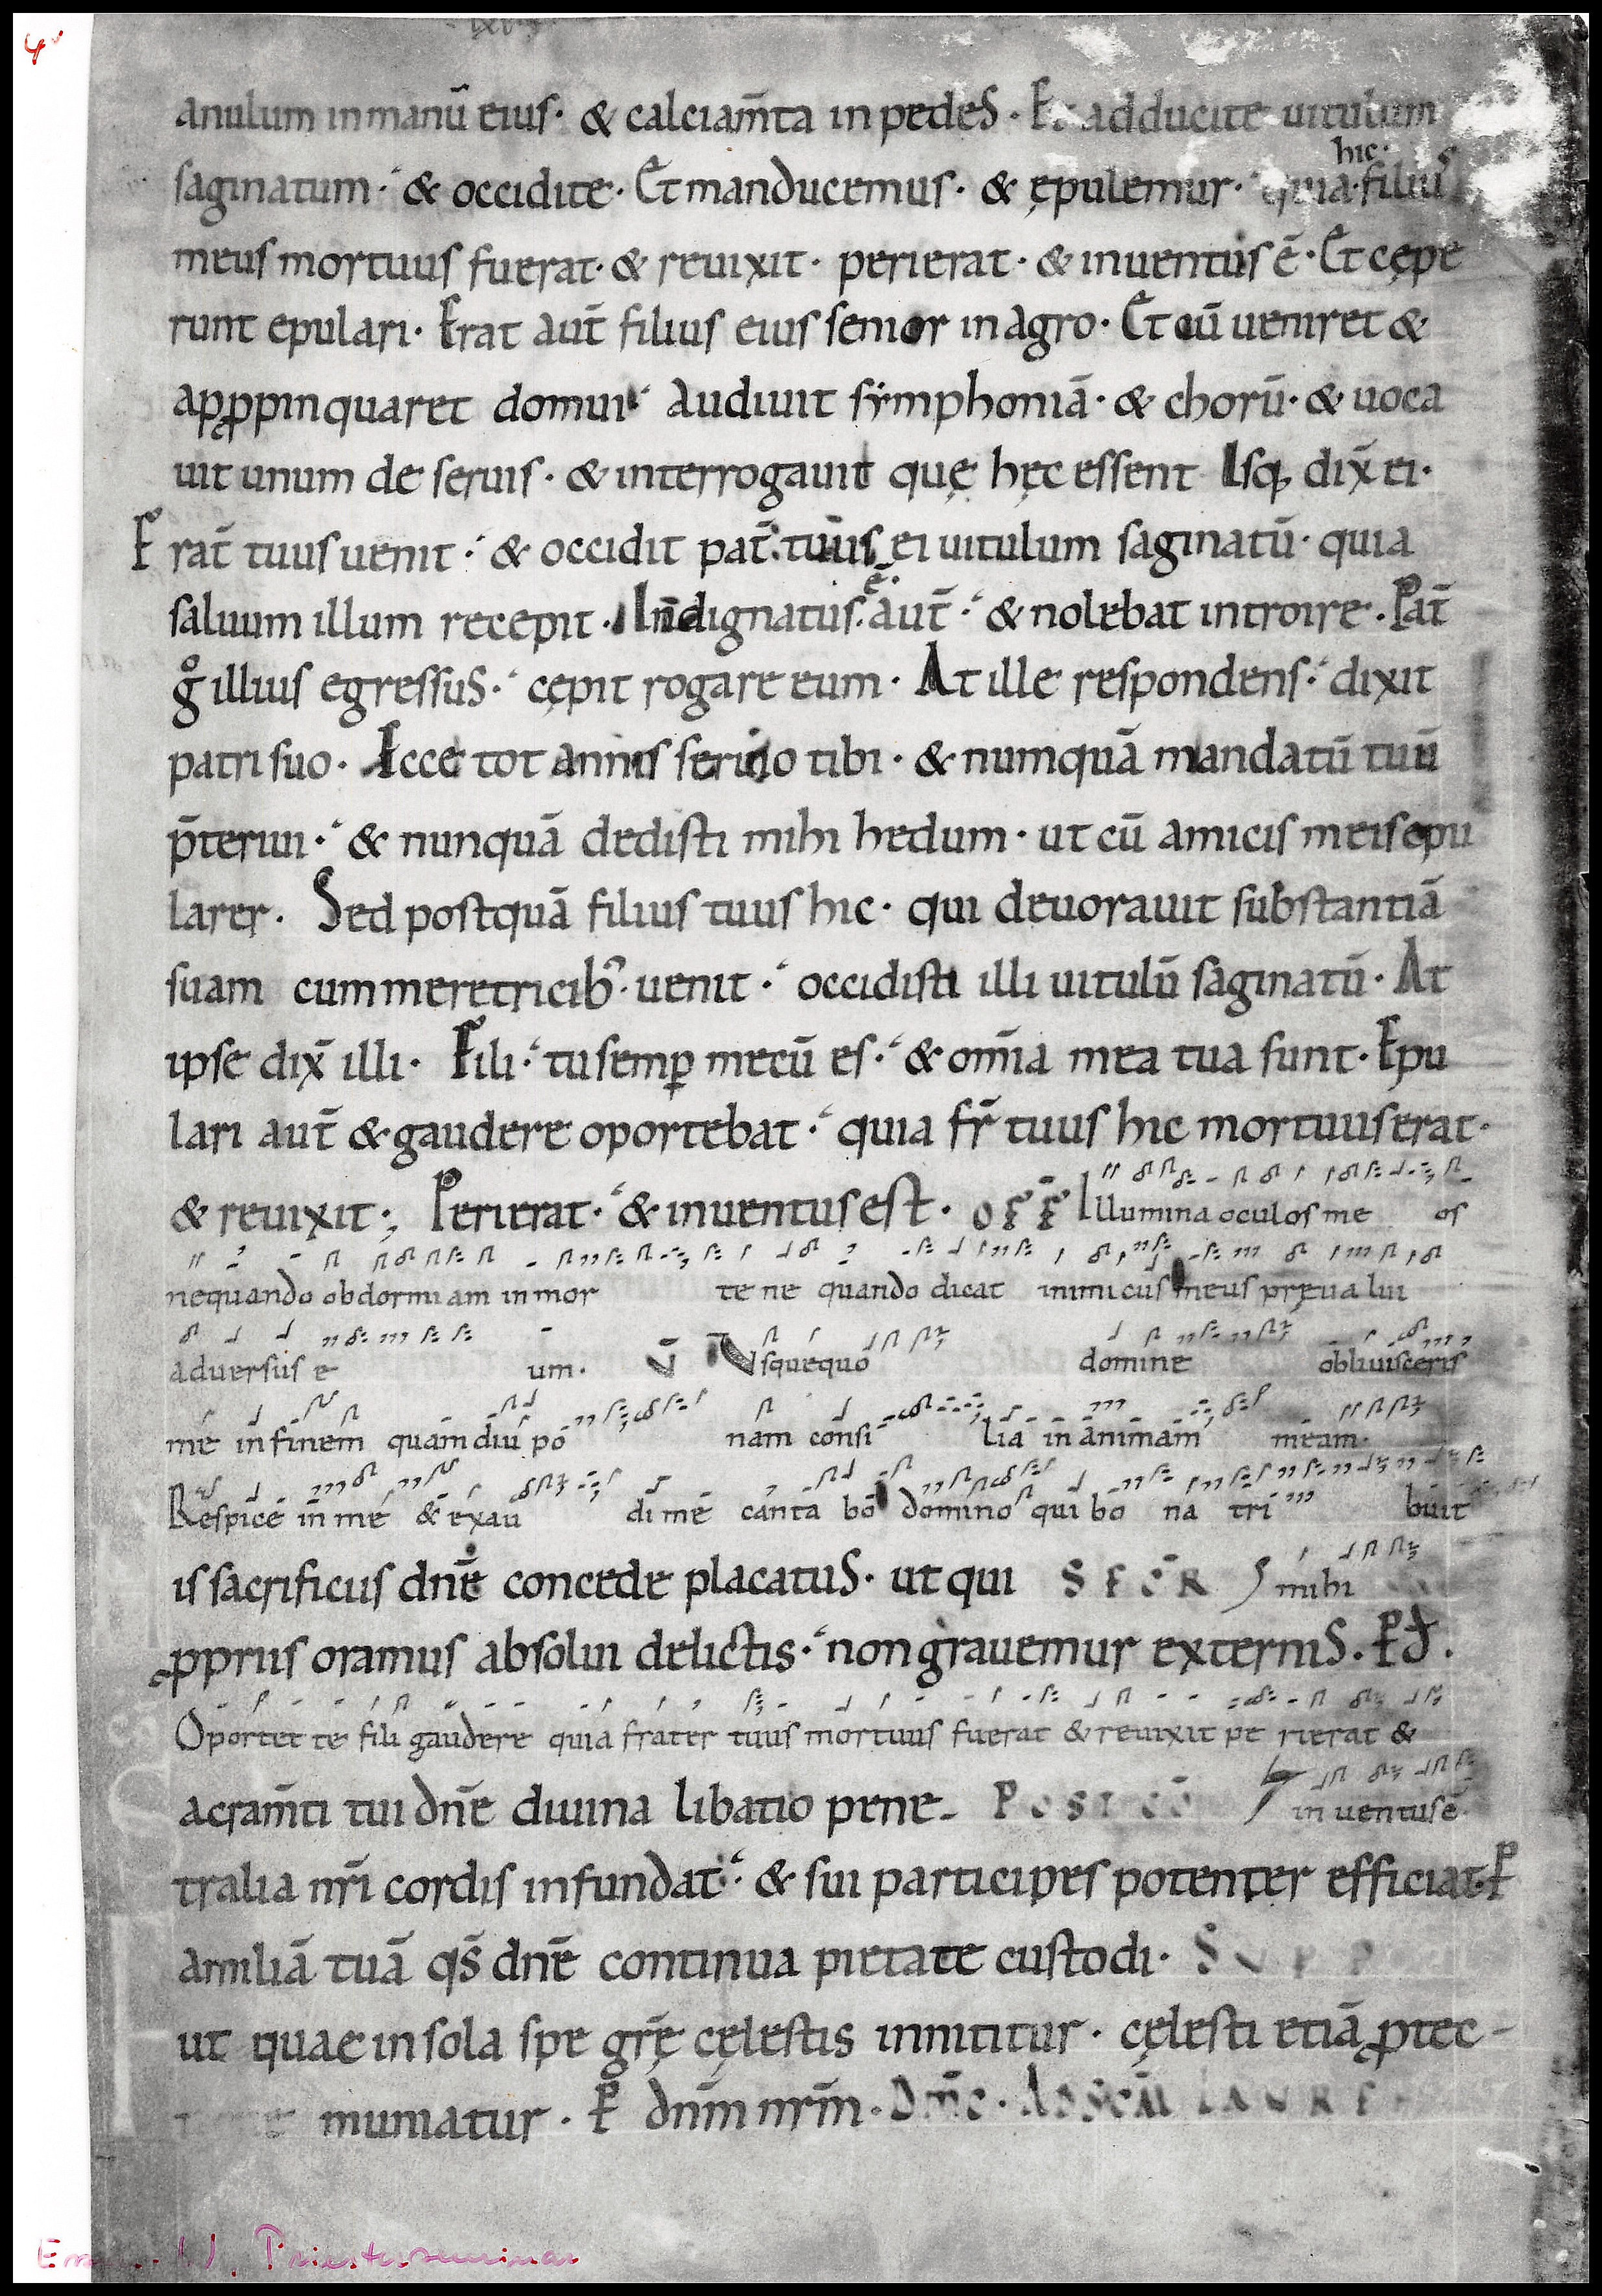 anulum in manū eius· & calciam̄ta in pedes· Et adducite uitulum
hic·
saginatum· & occidite· Et manducemus· & ępulemur· quia· filius
meus mortuus fuerat· & reuixit· perierat· & inuentus ē· Et cępe
runt epulari· Erat aut̄ filius eius senior in agro· Et cū ueniret &
apꝓpinquaret domui· audiuit sẏmphoniā· & chorū· & uoca
uit unum de seruis· & interrogauit quę hęc essent Isq; dix̄ ei·
Frat̄ tuus uenit· & occidit pat̄ tuus ei uitulum saginatū· quia
ē·
saluum illum recepit· Indignatus· aut̄· & nolebat introire· Pat̄
gͦ illius egressus· cępit rogare eum· At ille respondens· dixit
patri suo· Ecce tot annis seruio tibi· & numquā mandatū tuū
p̄teriui· & nunquā dedisti mihi hedum· ut cū amicis meis epu
larer· Sed postquā filius tuus hic· qui deuorauit substantiā
suam cum meretricib' uenit· occidisti illi uitulū saginatū· At
ipse dix̄ illi· Fili· tu semꝑ mecū es· & om̄ia mea tua sunt· Epu
lari aut̄ & gaudere oportebat· quia fr̄ tuus hic mortuus erat·
& reuixit; Perierat· & inuentus est· OFF̄ Illumina oculos me os
nequando obdormiam in mor te ne quando dicat inimicus meus pręualui
aduersus e um· V̄ Usquequo domine obliuisceris
me in finem quamdiu po nam consi lia in animam meam·
Respice in me & exau di me canta bo domino qui bo na tri buit
is sacrificiis dn̄e concede placatus· ut qui SECR̄ mihi
ꝓpriis oramus absolui delictis· non grauemur externis· P̄ d̄·
Oportet te fili gaudere quia frater tuus mortuus fuerat & reuixit pe rierat &
acram̄ti tui dn̄e diuina libatio pene- POSTCO̅ in uentus ē·
tralia nr̄i cordis infundat· & sui participes potenter efficiat· P̄
amiliā tuā qs̄ dn̄e continua pietate custodi·
ut quae in sola spe gr̄ę cęlestis innititur· cęlesti etiā ꝓtec-
muniatur· P̄ dn̄m nr̄m·